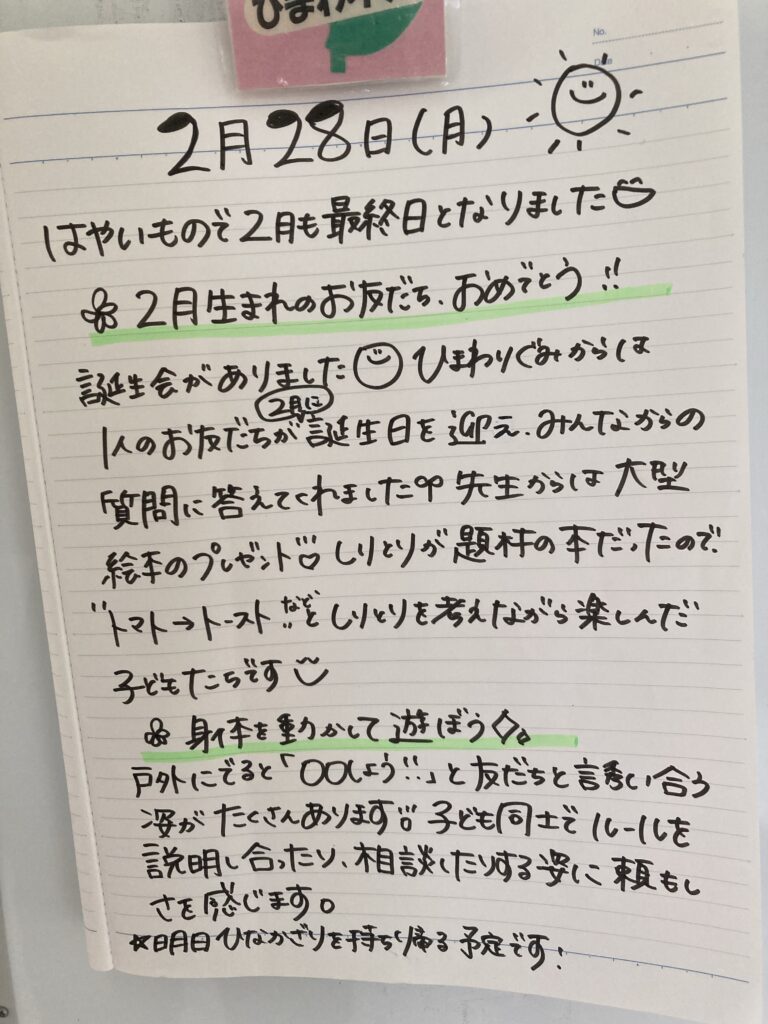 ひまわり
No.
Date
2月28日(月)
はやいもので2月も最終日となりました
2月生まれのお友だち、おめでとう!!
誕生会がありました ひまわりぐみからは
2月に
1人のお友だちが誕生日を迎え、みんなからの
質問に答えてくれました 先生からは大型
絵本のプレゼント しりとりが題材の本だったので、
"トマト→トースト"などとしりとりを考えながら楽しんだ
子どもたちです
身体を動かして遊ぼう
戸外にでると「〇〇しよう!!」と友だちと誘い合う
姿がたくさんあります 子ども同士でルールを
説明し合ったり、相談したりする姿に頼もし
さを感じます。
☆明日ひなかざりを持ち帰る予定です!